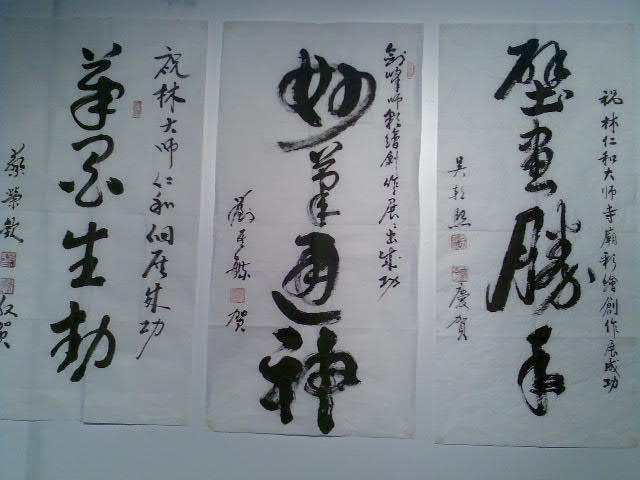 祝林仁和大师寺廟彩繪創作展成功
壁畫勝手
慶賀
剑峰师彩繪創作展々出成功
妙筆通神
賀
祝林大师仁和個展成功
筆墨生動
蔡榮欽
敬賀